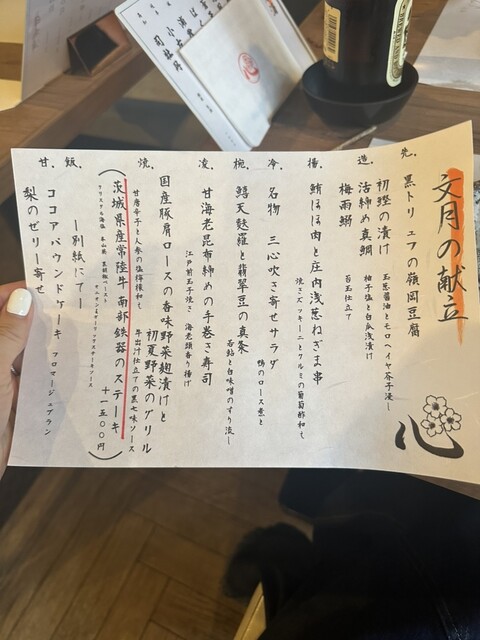 文月の献立
先、
黒トリュフの嶺岡豆腐
造、
初鰹の漬け 玉葱醤油とモロヘイヤ芥子浸〜
活〆め真鯛 柚子塩と白瓜浅漬け
梅雨鰯 苔玉仕立て
揚、
鮪ほほ肉と庄内浅葱ねぎま串
焼きズッキーニとクルミの葡萄酢和え
冷、
名物 三心吹き寄せサラダ
鴨のロース煮と
椀、
鱧天麩羅と翡翠豆の真条
若鮎と白味噌のすり流〜
凌、
甘海老昆布締めの手巻き寿司
江戸前玉子焼き 海老頭香り揚げ
焼、
国産豚肩ロースの香味野菜麹漬けと
初夏野菜のグリル
甘唐辛子と人参の塩檸檬和え 牛出汁仕立ての黒七味ソース
(茨城県産常陸牛 南部鉄器のステーキ 十一五〇〇円)
クリスタル海塩 本山葵 黒胡椒ペースト オニオン&ガーリックステーキソース
飯、
ー別紙にてー
甘、
ココアパウンドケーキ フロマージュブラン
梨のゼリー寄せ
心